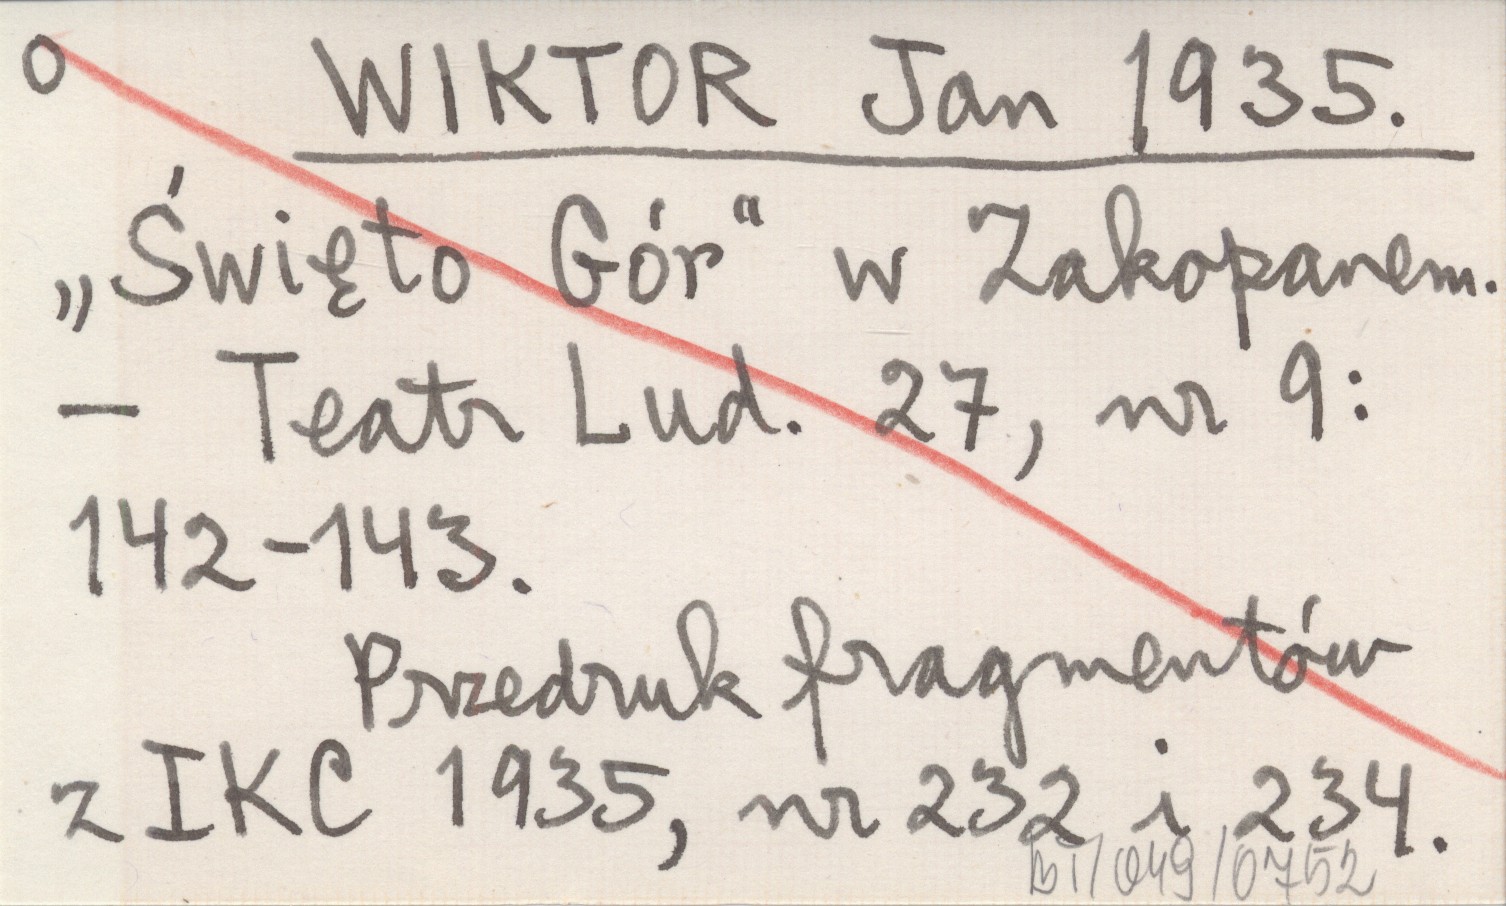 o WIKTOR Jan 1935.
„Święto Gór“ w Zakopanem.
– Teatr Lud. 27, nr 9:
142-143.
Przedruk fragmentów
z IKC 1935, nr 232 i 234.
BI/049/0752